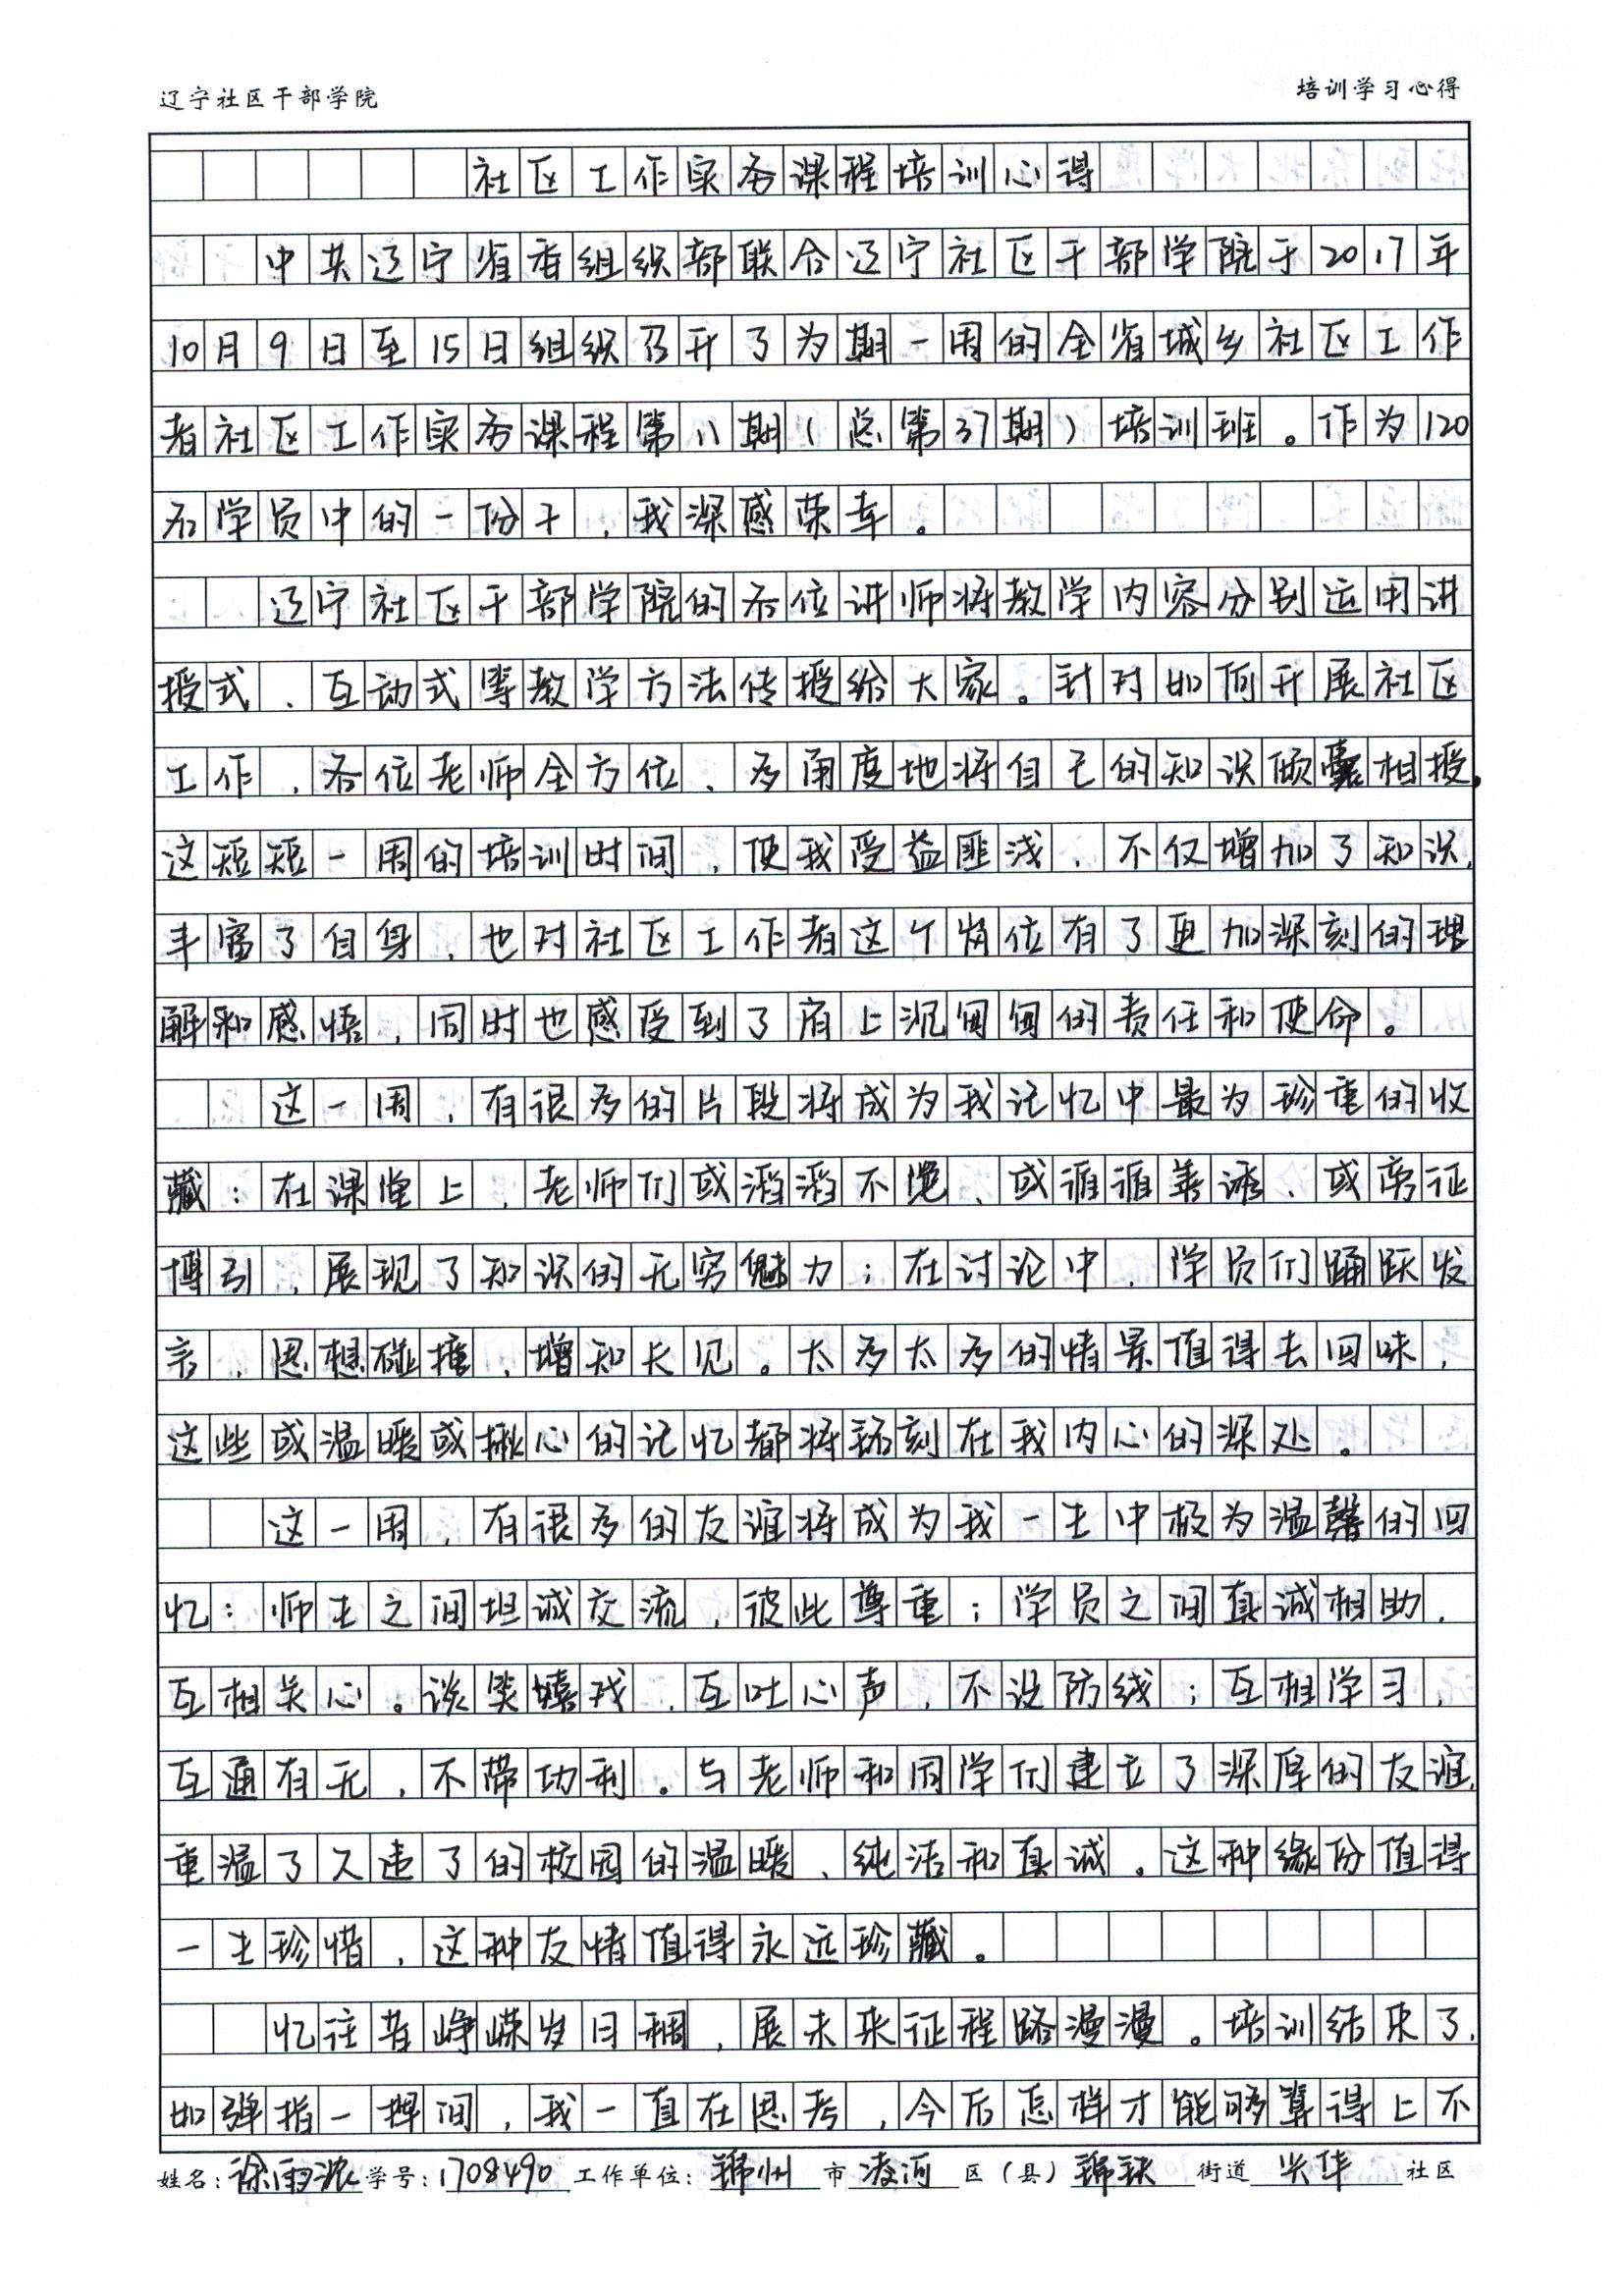 辽宁社区干部学院 培训学习心得
社区工作实务课程培训心得
中共辽宁省委组织部联合辽宁社区干部学院于2017年
10月9日至15日组织召开了为期一周的全省城乡社区工作
者社区工作实务课程第11期(总第37期)培训班。作为120
名学员中的一份子,我深感荣幸。
辽宁社区干部学院的各位讲师将教学内容分别运用讲
授式、互动式等教学方法传授给大家。针对如何开展社区
工作,各位老师全方位、多角度地将自己的知识倾囊相授,
这短短一周的培训时间,使我受益匪浅,不仅增加了知识,
丰富了自身,也对社区工作者这个岗位有了更加深刻的理
解和感悟,同时也感受到了肩上沉甸甸的责任和使命。
这一周,有很多的片段将成为我记忆中最为珍重的收
藏:在课堂上,老师们或滔滔不绝、或循循善诱、或旁征
博引,展现了知识的无穷魅力;在讨论中,学员们踊跃发
言,思想碰撞,增知长见。太多太多的情景值得去回味,
这些或温暖或揪心的记忆都将铭刻在我内心的深处。
这一周,有很多的友谊将成为我一生中极为温馨的回
忆:师生之间坦诚交流,彼此尊重;学员之间真诚相助,
互相关心。谈笑嬉戏,互吐心声,不设防线;互相学习,
互通有无,不带功利。与老师和同学们建立了深厚的友谊,
重温了久违了的校园的温暖、纯洁和真诚。这种缘份值得
一生珍惜,这种友情值得永远珍藏。
忆往昔峥嵘岁月稠,展未来征程路漫漫。培训结束了,
如弹指一挥间,我一直在思考,今后怎样才能够算得上不
姓名:徐雨浓 学号:1708490 工作单位:锦州 市 凌河 区(县) 锦铁 街道 兴华 社区